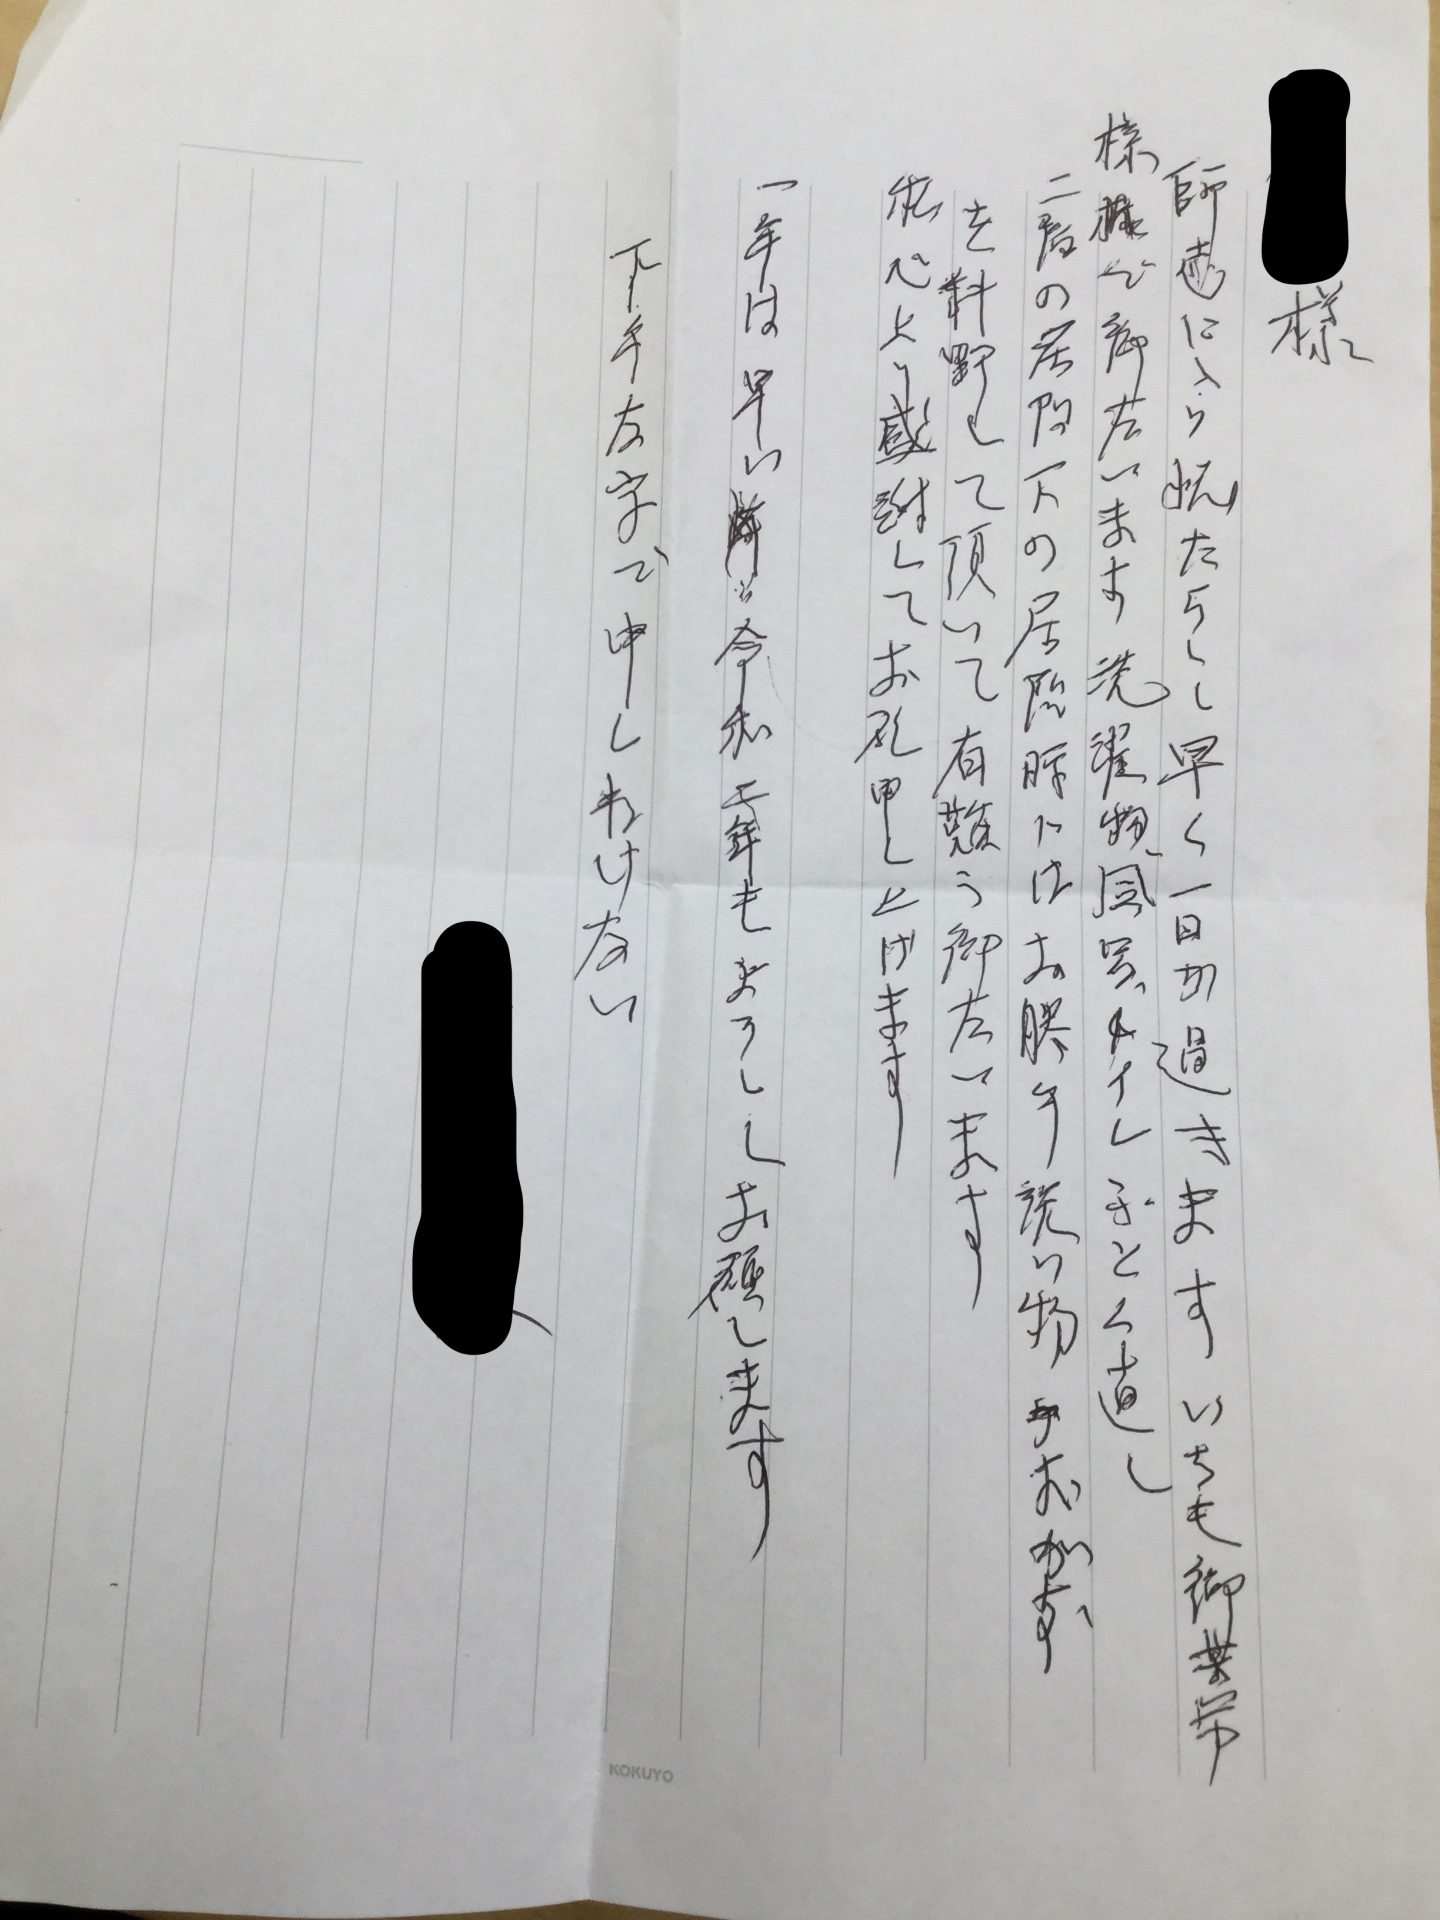 様
師走に入り慌たらしく早く一日が過きます いちも御世帯
様様で御左います 洗濯物、風呂、トイレ 子とく直し
二階の居間下の居間 豚にはお勝手 洗い物 手おかず
を料理して頂いて有難う御左います
私心より感謝してお礼申し上げます
一年は早い 令和 年もよろししお願します
下手な字で申しわけない
KOKUYO